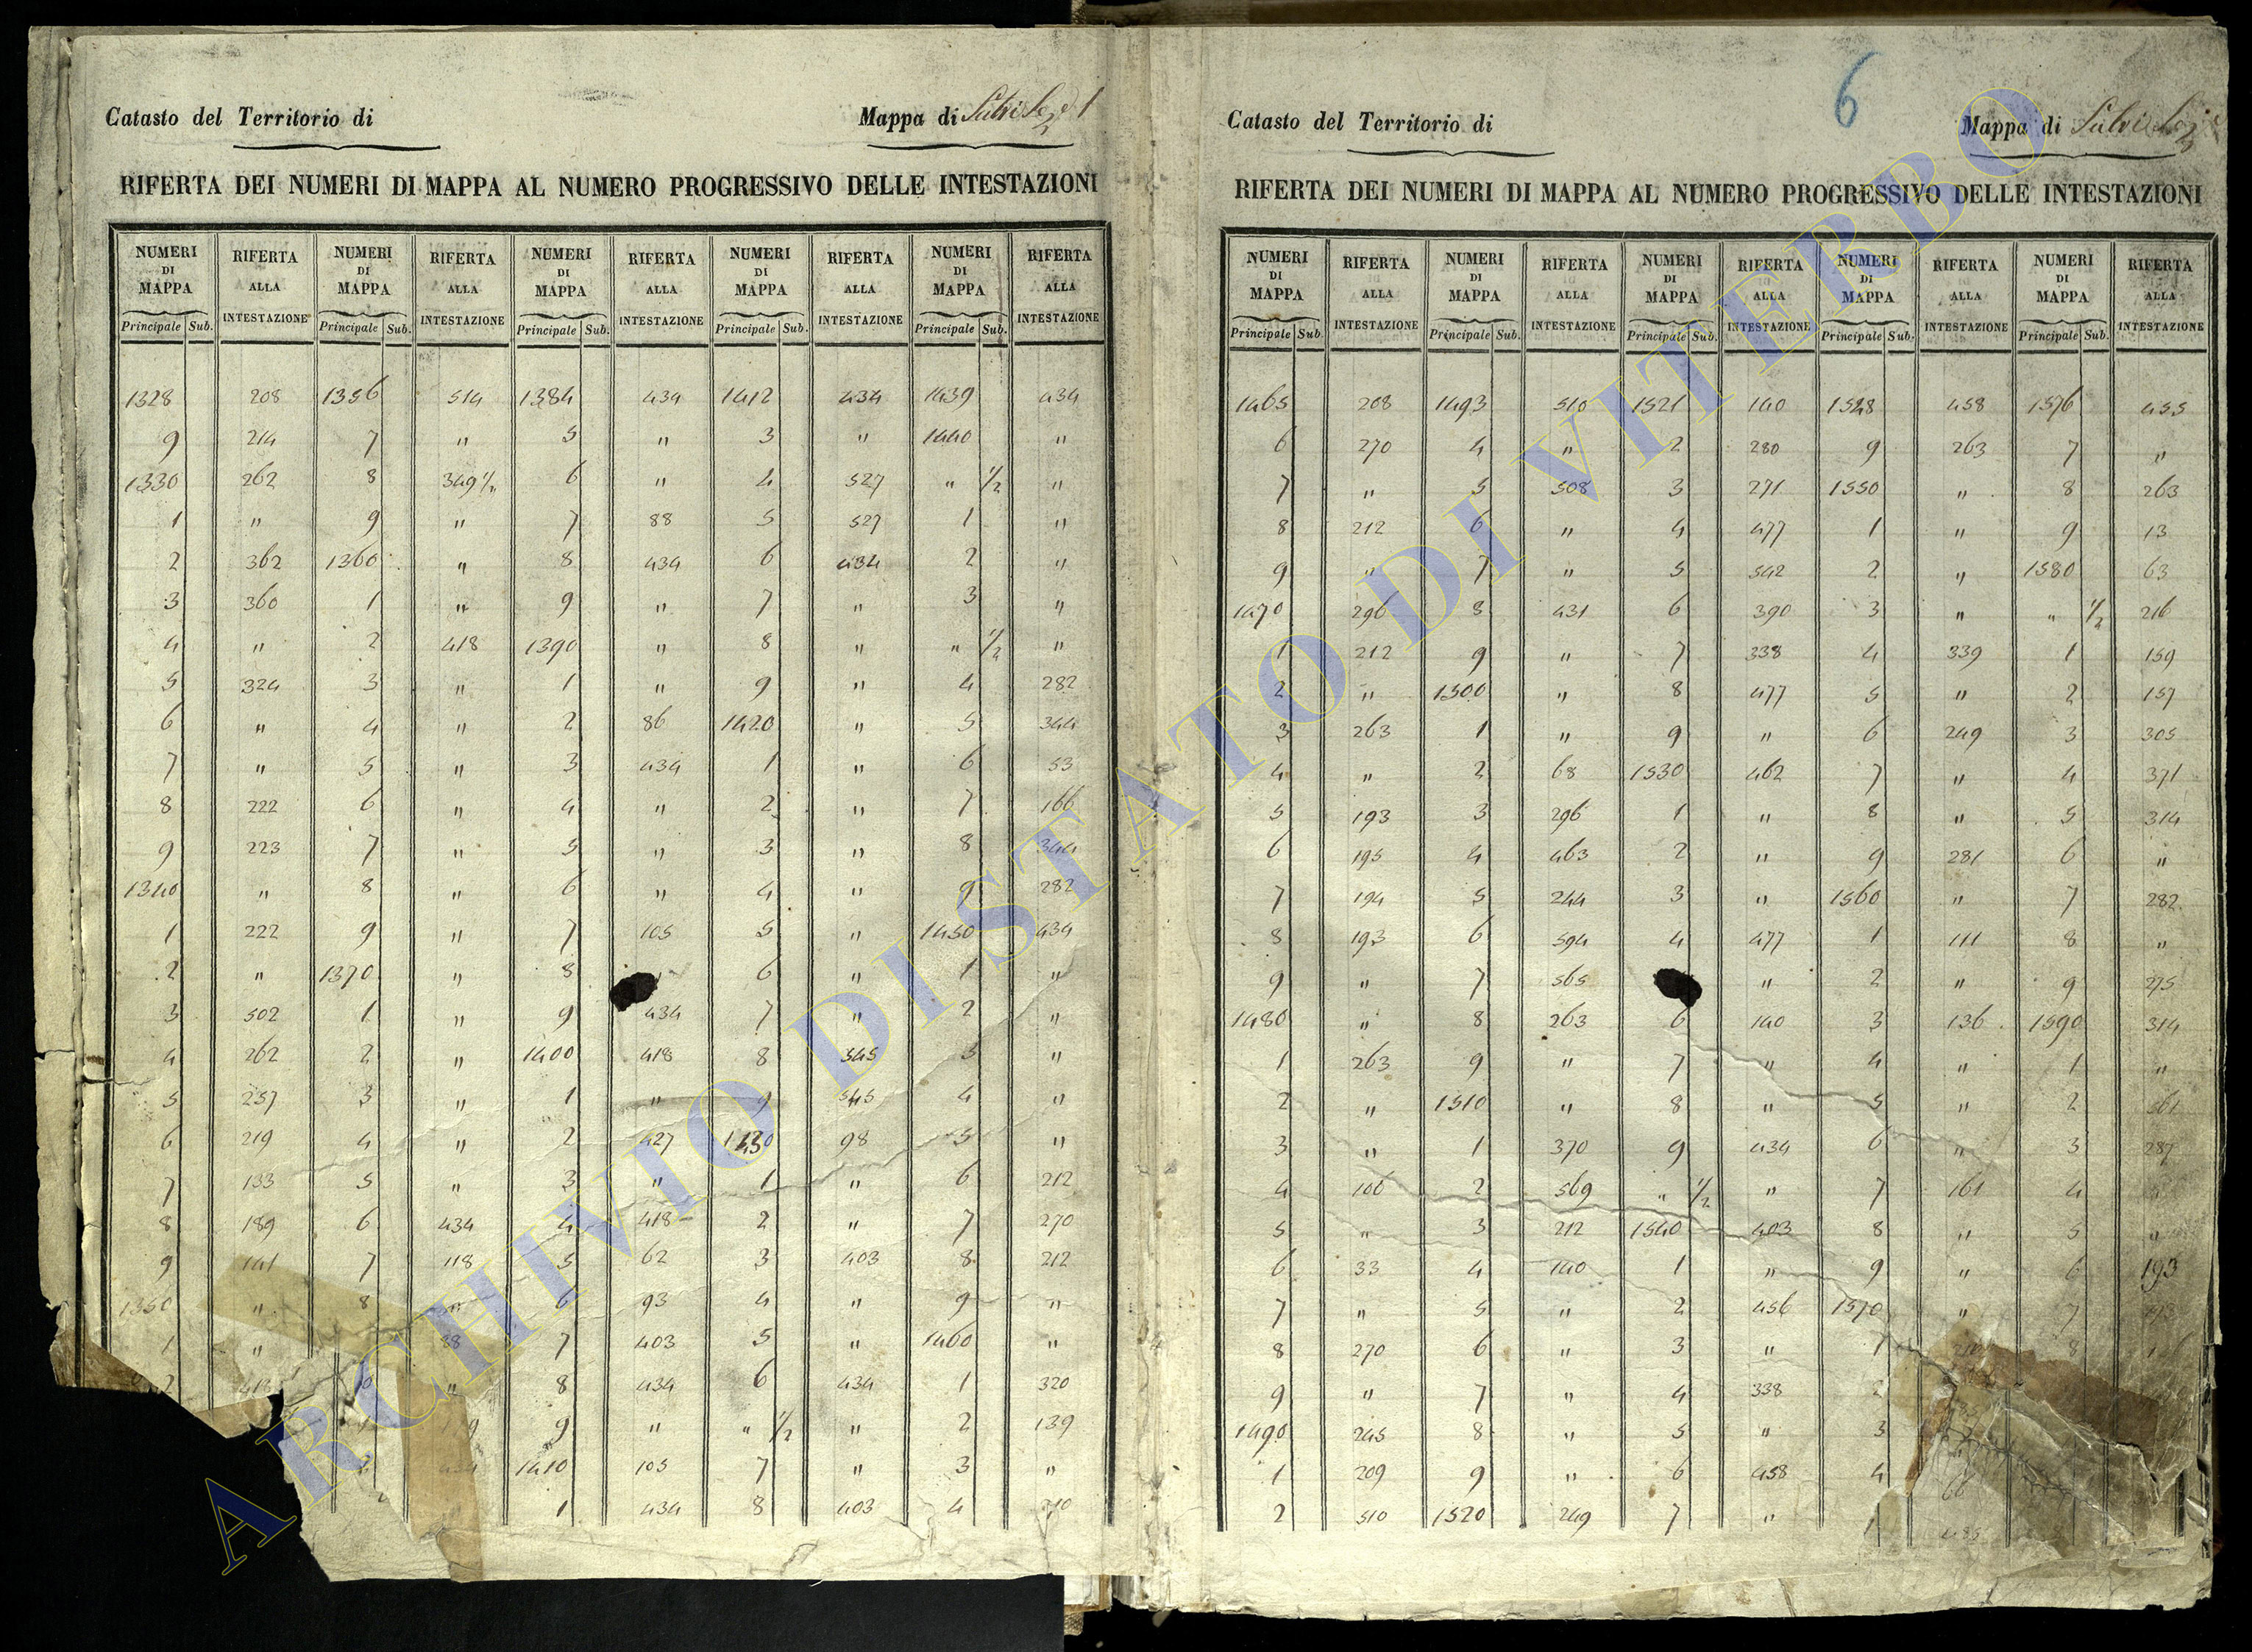 6
Catasto del Territorio di
Mappa di
RIFERTA DEI NUMERI DI MAPPA AL NUMERO PROGRESSIVO DELLE INTESTAZIONI
NUMERI DI MAPPA RIFERTA ALLA INTESTAZIONE NUMERI DI MAPPA RIFERTA ALLA INTESTAZIONE NUMERI DI MAPPA RIFERTA ALLA INTESTAZIONE NUMERI DI MAPPA RIFERTA ALLA INTESTAZIONE NUMERI DI MAPPA RIFERTA ALLA INTESTAZIONE
Principale Sub. Principale Sub. Principale Sub. Principale Sub. Principale Sub.
1328 208 1356 514 1384 434 1412 434 1439 434
9 214 7 " 5 " 3 " 1440 "
1330 262 8 349 1/2 6 " 4 527 " 1/2 "
1 " 9 " 7 88 5 527 1 "
2 362 1360 " 8 434 6 434 2 "
3 360 1 " 9 " 7 " 3 "
4 " 2 418 1390 " 8 " " 1/2 "
5 324 3 " 1 " 9 " 4 282
6 " 4 " 2 86 1420 " 5 344
7 " 5 " 3 434 1 " 6 53
8 222 6 " 4 " 2 " 7 166
9 223 7 " 5 " 3 " 8 344
1340 " 8 " 6 " 4 " 9 282
1 222 9 " 7 105 5 " 1450 434
2 " 1370 " 8 6 " 1 "
3 502 1 " 9 434 7 " 2 "
4 262 2 " 1400 418 8 545 3 "
5 257 3 " 1 " 9 545 4 "
6 219 4 " 2 427 1430 98 5 "
7 133 5 " 3 " 1 " 6 212
8 189 6 434 4 418 2 " 7 270
9 141 7 118 5 62 3 403 8 212
1350 " 8 " 6 93 4 " 9 "
1 " 88 7 403 5 " 1460 "
2 " 8 434 6 434 1 320
9 " " 1/2 " 2 139
1410 105 7 " 3 "
1 434 8 403 4 210
Catasto del Territorio di
Mappa di
RIFERTA DEI NUMERI DI MAPPA AL NUMERO PROGRESSIVO DELLE INTESTAZIONI
NUMERI DI MAPPA RIFERTA ALLA INTESTAZIONE NUMERI DI MAPPA RIFERTA ALLA INTESTAZIONE NUMERI DI MAPPA RIFERTA ALLA INTESTAZIONE NUMERI DI MAPPA RIFERTA ALLA INTESTAZIONE NUMERI DI MAPPA RIFERTA ALLA INTESTAZIONE
Principale Sub. Principale Sub. Principale Sub. Principale Sub. Principale Sub.
1465 208 1493 510 1521 140 1548 458 1576 455
6 270 4 " 2 280 9 263 7 "
7 " 5 508 3 271 1550 " 8 263
8 212 6 " 4 477 1 " 9 13
9 " 7 " 5 542 2 " 1580 63
1470 296 8 431 6 390 3 " " 1/2 216
1 212 9 " 7 338 4 339 1 159
2 " 1500 " 8 477 5 " 2 157
3 263 1 " 9 " 6 249 3 305
4 " 2 68 1530 462 7 " 4 371
5 193 3 296 1 " 8 " 5 314
6 195 4 463 2 " 9 281 6 "
7 194 5 244 3 " 1560 " 7 282
8 193 6 594 4 477 1 111 8 "
9 " 7 565 " 2 " 9 275
1480 " 8 263 6 140 3 136 1590 314
1 263 9 " 7 " 4 " 1 "
2 " 1510 " 8 " 5 " 2 561
3 " 1 370 9 434 6 " 3 287
4 106 2 569 " 1/2 " 7 161 4
5 " 3 212 1540 403 8 " 5 "
6 33 4 140 1 " 9 " 6 193
7 " 5 " 2 456 1570 " 7
8 270 6 " 3 " 1 8
9 " 7 " 4 338 2
1490 245 8 " 5 " 3
1 209 9 " 6 458 4
2 510 1520 249 7 "
ARCHIVIO DI STATO DI VITERBO